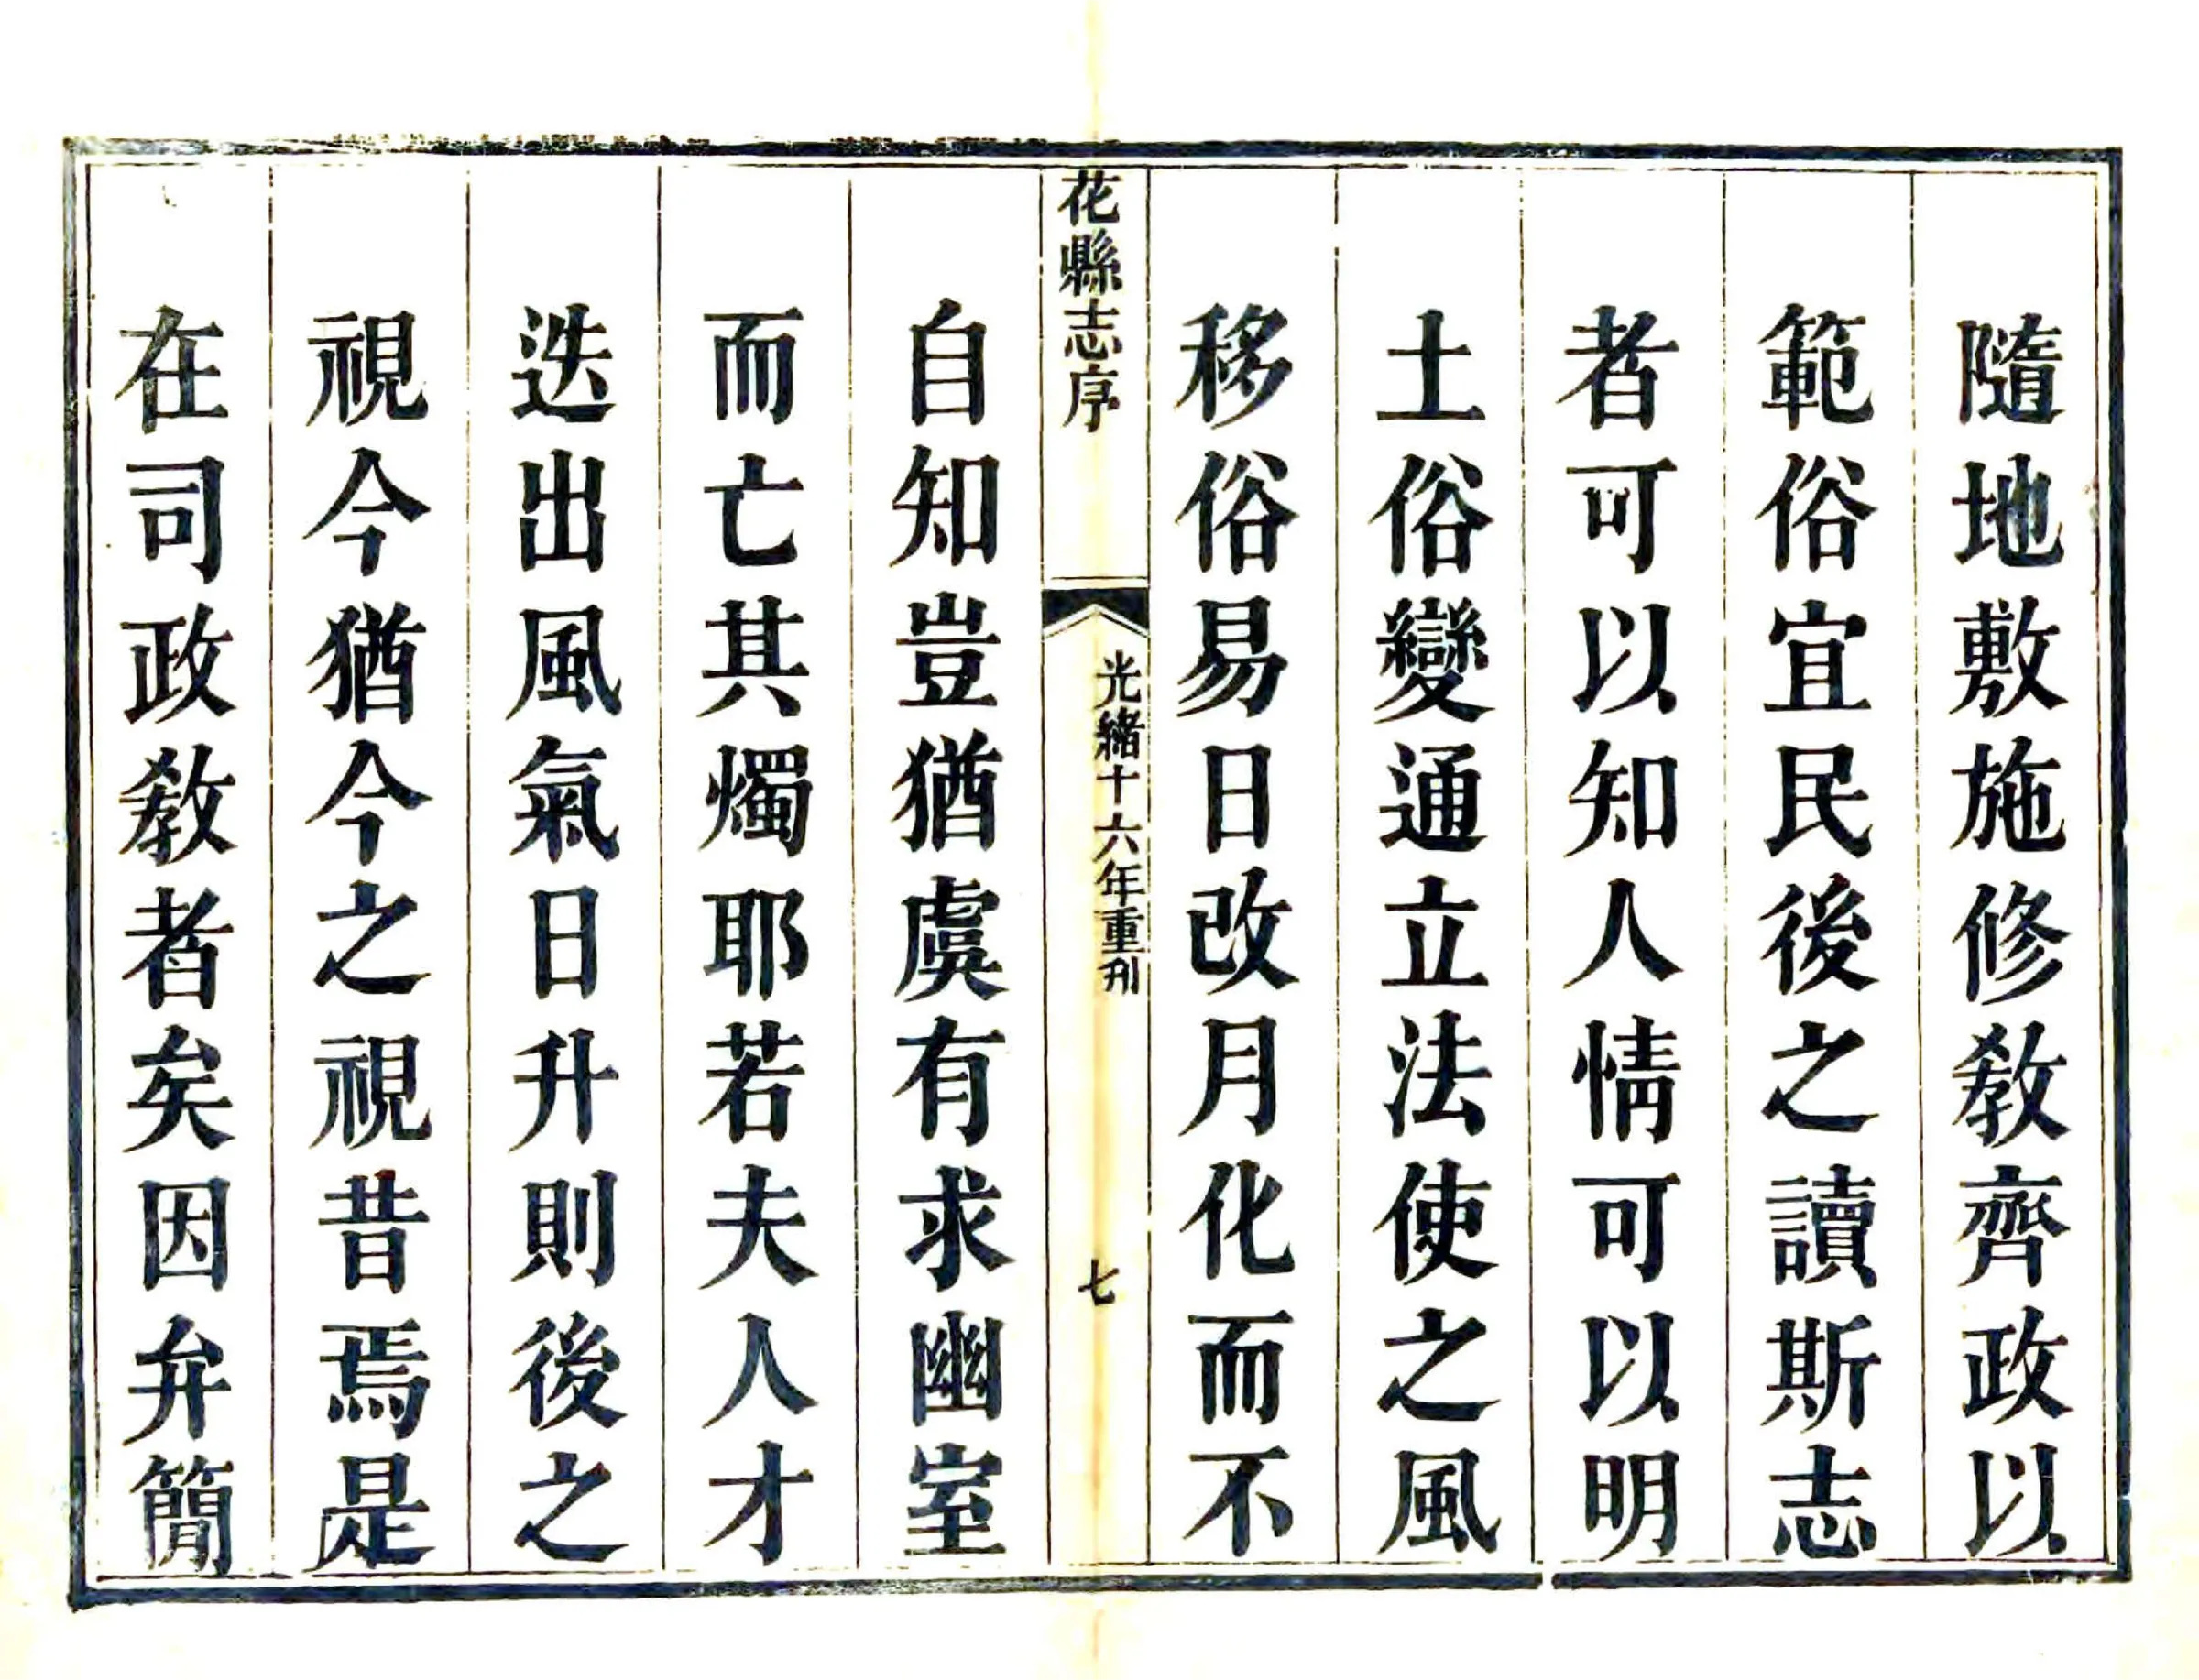 隨地敷施修教齊政以
範俗宜民後之讀斯志
者可以知人情可以明
土俗變通立法使之風
移俗易日改月化而不
花縣志序
光緒十六年重刊
七
自知豈猶虞有求幽室
而亡其燭耶若夫人才
迭出風氣日升則後之
視今猶今之視昔焉是
在司政教者矣因弁簡